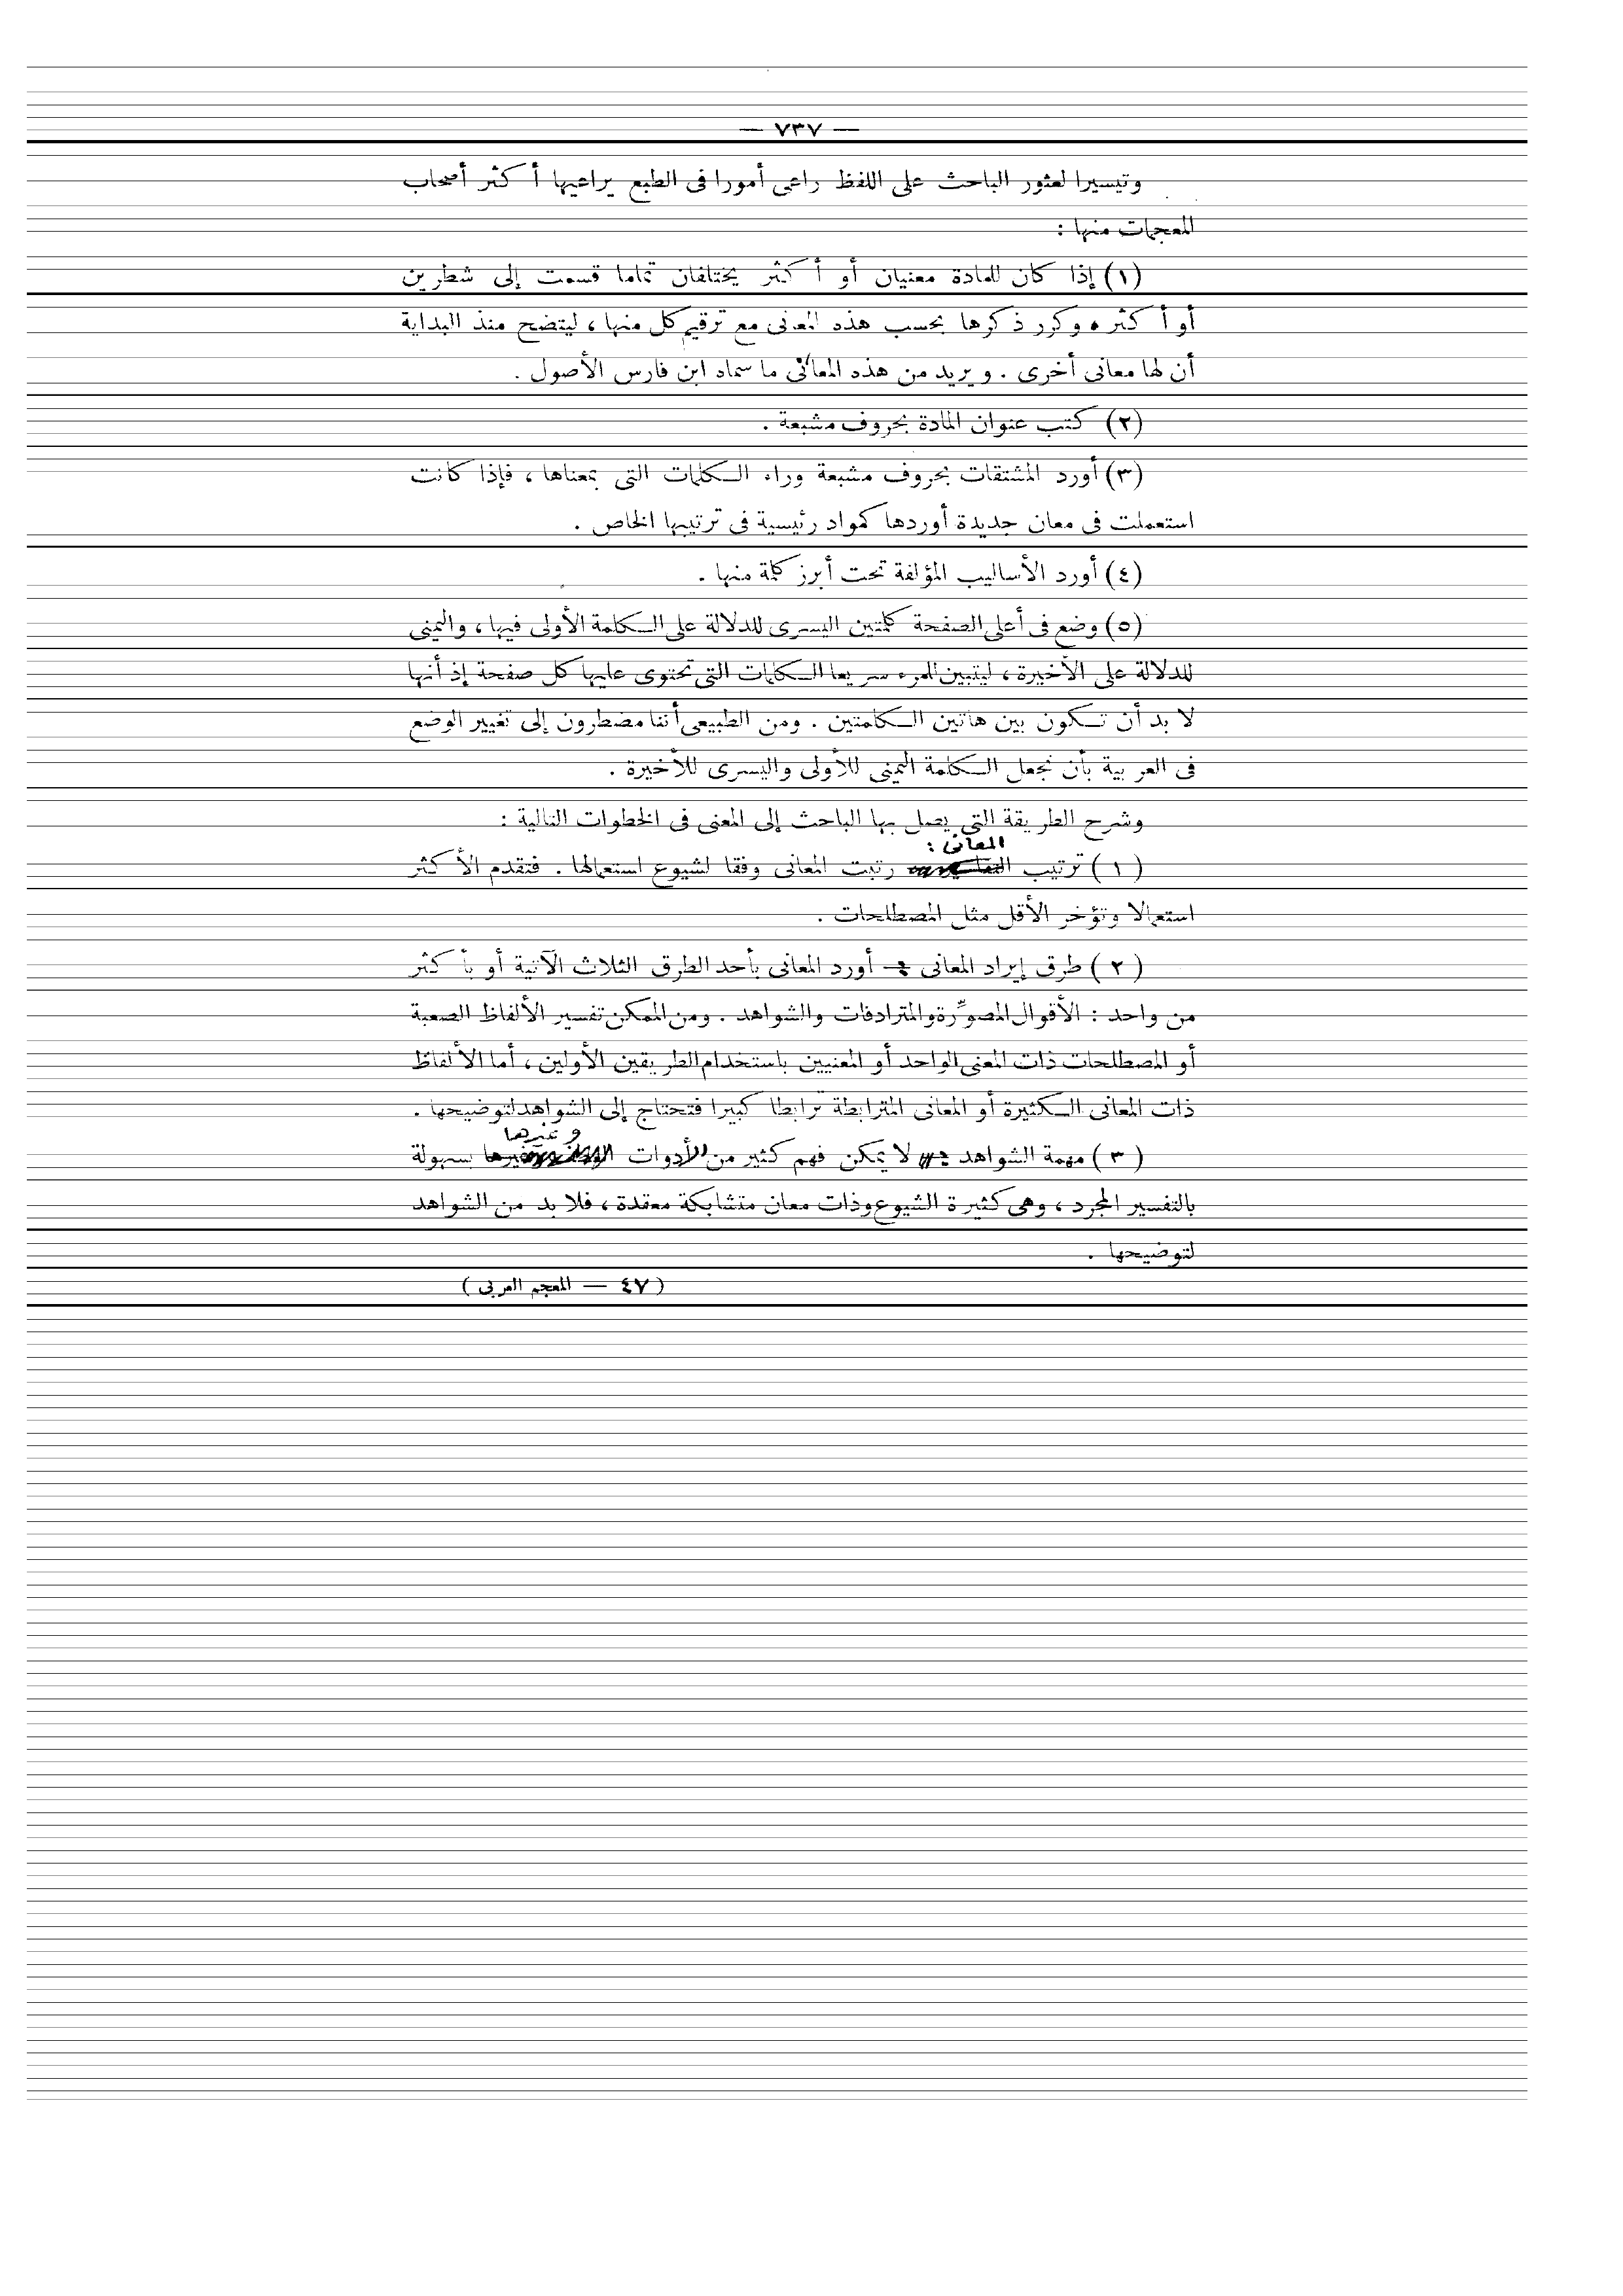 — ٧٣٧ —
وتيسيرا لعثور الباحث على اللفظ راعى أمورا فى الطبع يراعيها أكثر أصحاب
المعجمات منها :
(١) إذا كان للمادة معنيان أو أكثر يختلفان تماما قسمت إلى شطرين
أو أكثر ، وكرر ذكرها بحسب هذه المعانى مع ترقيم كل منها ، ليتضح منذ البداية
أن لها معانى أخرى . ويريد من هذه المعانى ما سماه ابن فارس الأصول .
(٢) كتب عنوان المادة بحروف مشبعة .
(٣) أورد المشتقات بحروف مشبعة وراء الكلمات التى بمعناها ، فإذا كانت
استعملت فى معان جديدة أوردها كمواد رئيسية فى ترتيبها الخاص .
(٤) أورد الأساليب المؤلفة تحت أبرز كلمة منها .
(٥) وضع فى أعلى الصفحة كلمتين اليسرى للدلالة على الكلمة الأولى فيها ، واليمنى
للدلالة على الأخيرة ، ليتبين المرء سريعا الكلمات التى تحتوى عليها كل صفحة إذ أنها
لا بد أن تكون بين هاتين الكلمتين . ومن الطبيعى أننا مضطرون إلى تغيير الوضع
فى العربية بأن نجعل الكلمة اليمنى للأولى واليسرى للأخيرة .
وشرح الطريقة التى يصل بها الباحث إلى المعنى فى الخطوات التالية :
المعانى :
( ١ ) ترتيب رتبت المعانى وفقا لشيوع استعمالها . فتقدم الأكثر
استعمالا وتؤخر الأقل مثل المصطلحات .
( ٢ ) طرق إيراد المعانى : أورد المعانى بأحد الطرق الثلاث الآتية أو بأكثر
من واحد : الأقوال المصوّرة والمترادفات والشواهد . ومن الممكن تفسير الألفاظ الصعبة
أو المصطلحات ذات المعنى الواحد أو المعنيين باستخدام الطريقين الأولين ، أما الألفاظ
ذات المعانى الكثيرة أو المعانى المترابطة ترابطا كبيرا فتحتاج إلى الشواهد لتوضيحها .
وغيرها
( ٣ ) مهمة الشواهد : لا يمكن فهم كثير من الأدوات بسهولة
بالتفسير المجرد ، وهى كثيرة الشيوع وذات معان متشابكة معقدة ، فلا بد من الشواهد
لتوضيحها .
( ٤٧ — المعجم العربى )